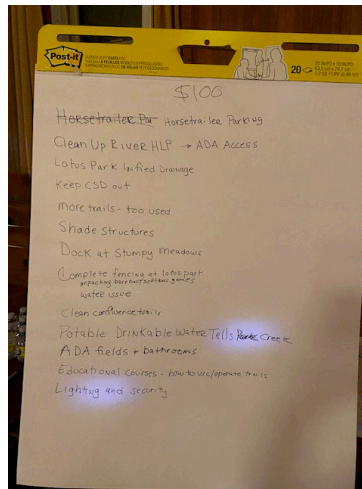 Post-it
20
$100
Horsetrailer Par Horsetrailer Parking
Clean Up River HLP → ADA Access
Lotus Park Unified Drainage
Keep CSD out
more trails - too used
Shade Structures
Dock at Stumpy Meadows
Complete fencing at lotus park
games
water issue
Clean confluence trails
Potable Drinkable Water Tells Creek
ADA fields + bathrooms
Educational courses - how to use/operate trails
Lighting and security